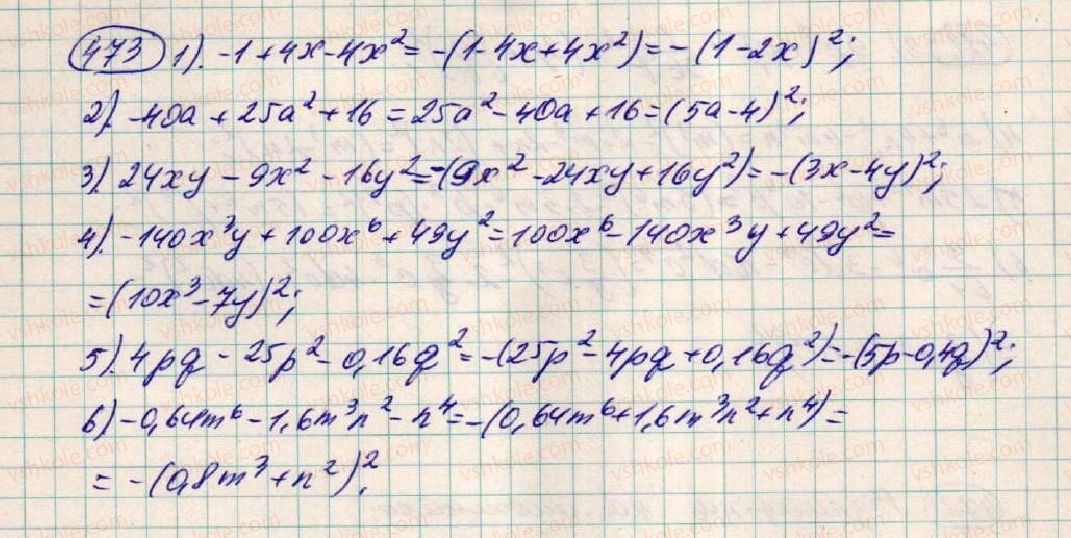 473 1). -1+4x-4x²=-(1-4x+4x²)=-(1-2x)²;
2). -40a+25a²+16=25a²-40a+16=(5a-4)²;
3). 24xy-9x²-16y²=-(9x²-24xy+16y²)=-(3x-4y)²;
4). -140x³y+100x⁶+49y²=100x⁶-140x³y+49y²=
=(10x³-7y)²;
5). 4pq-25p²-0,16q²=-(25p²-4pq+0,16q²)=-(5p-0,4q)²;
6) -0,64m⁶-1,6m³n²-n⁴=-(0,64m⁶+1,6m³n²+n⁴)=
=-(0,8m³+n²)².